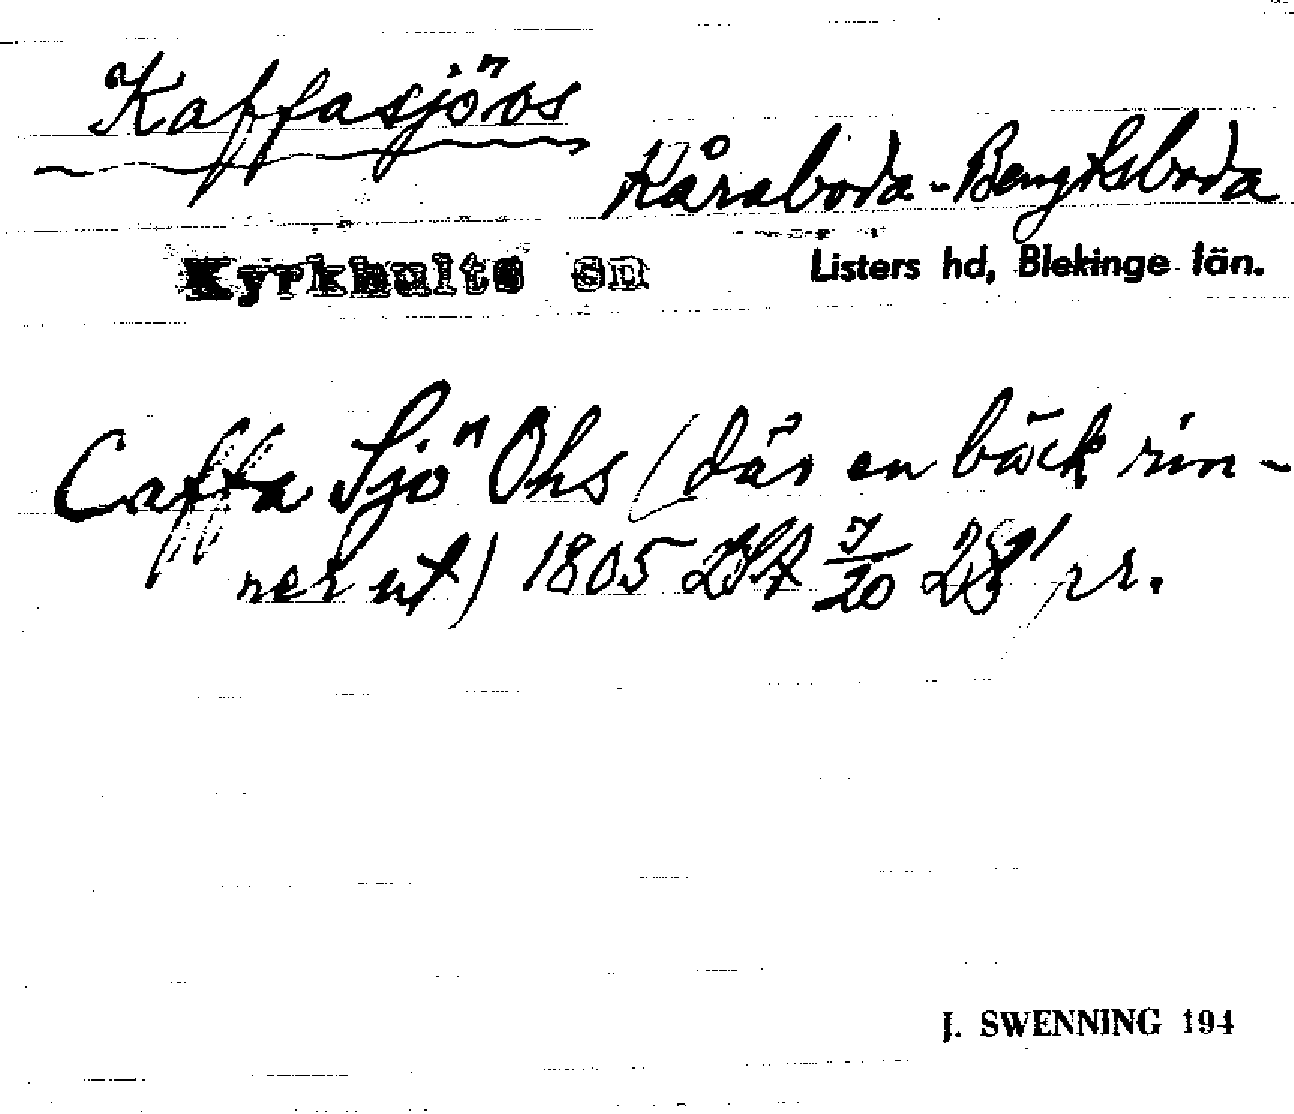 Kaffasjöos
Kåraboda-Bengtsboda
Kyrkhults sn
Listers hd, Blekinge län.
Caffa Sjö Ohs (där en bäck rin-
ner ut) 1805 7/20 28 pr.
J. SWENNING 194